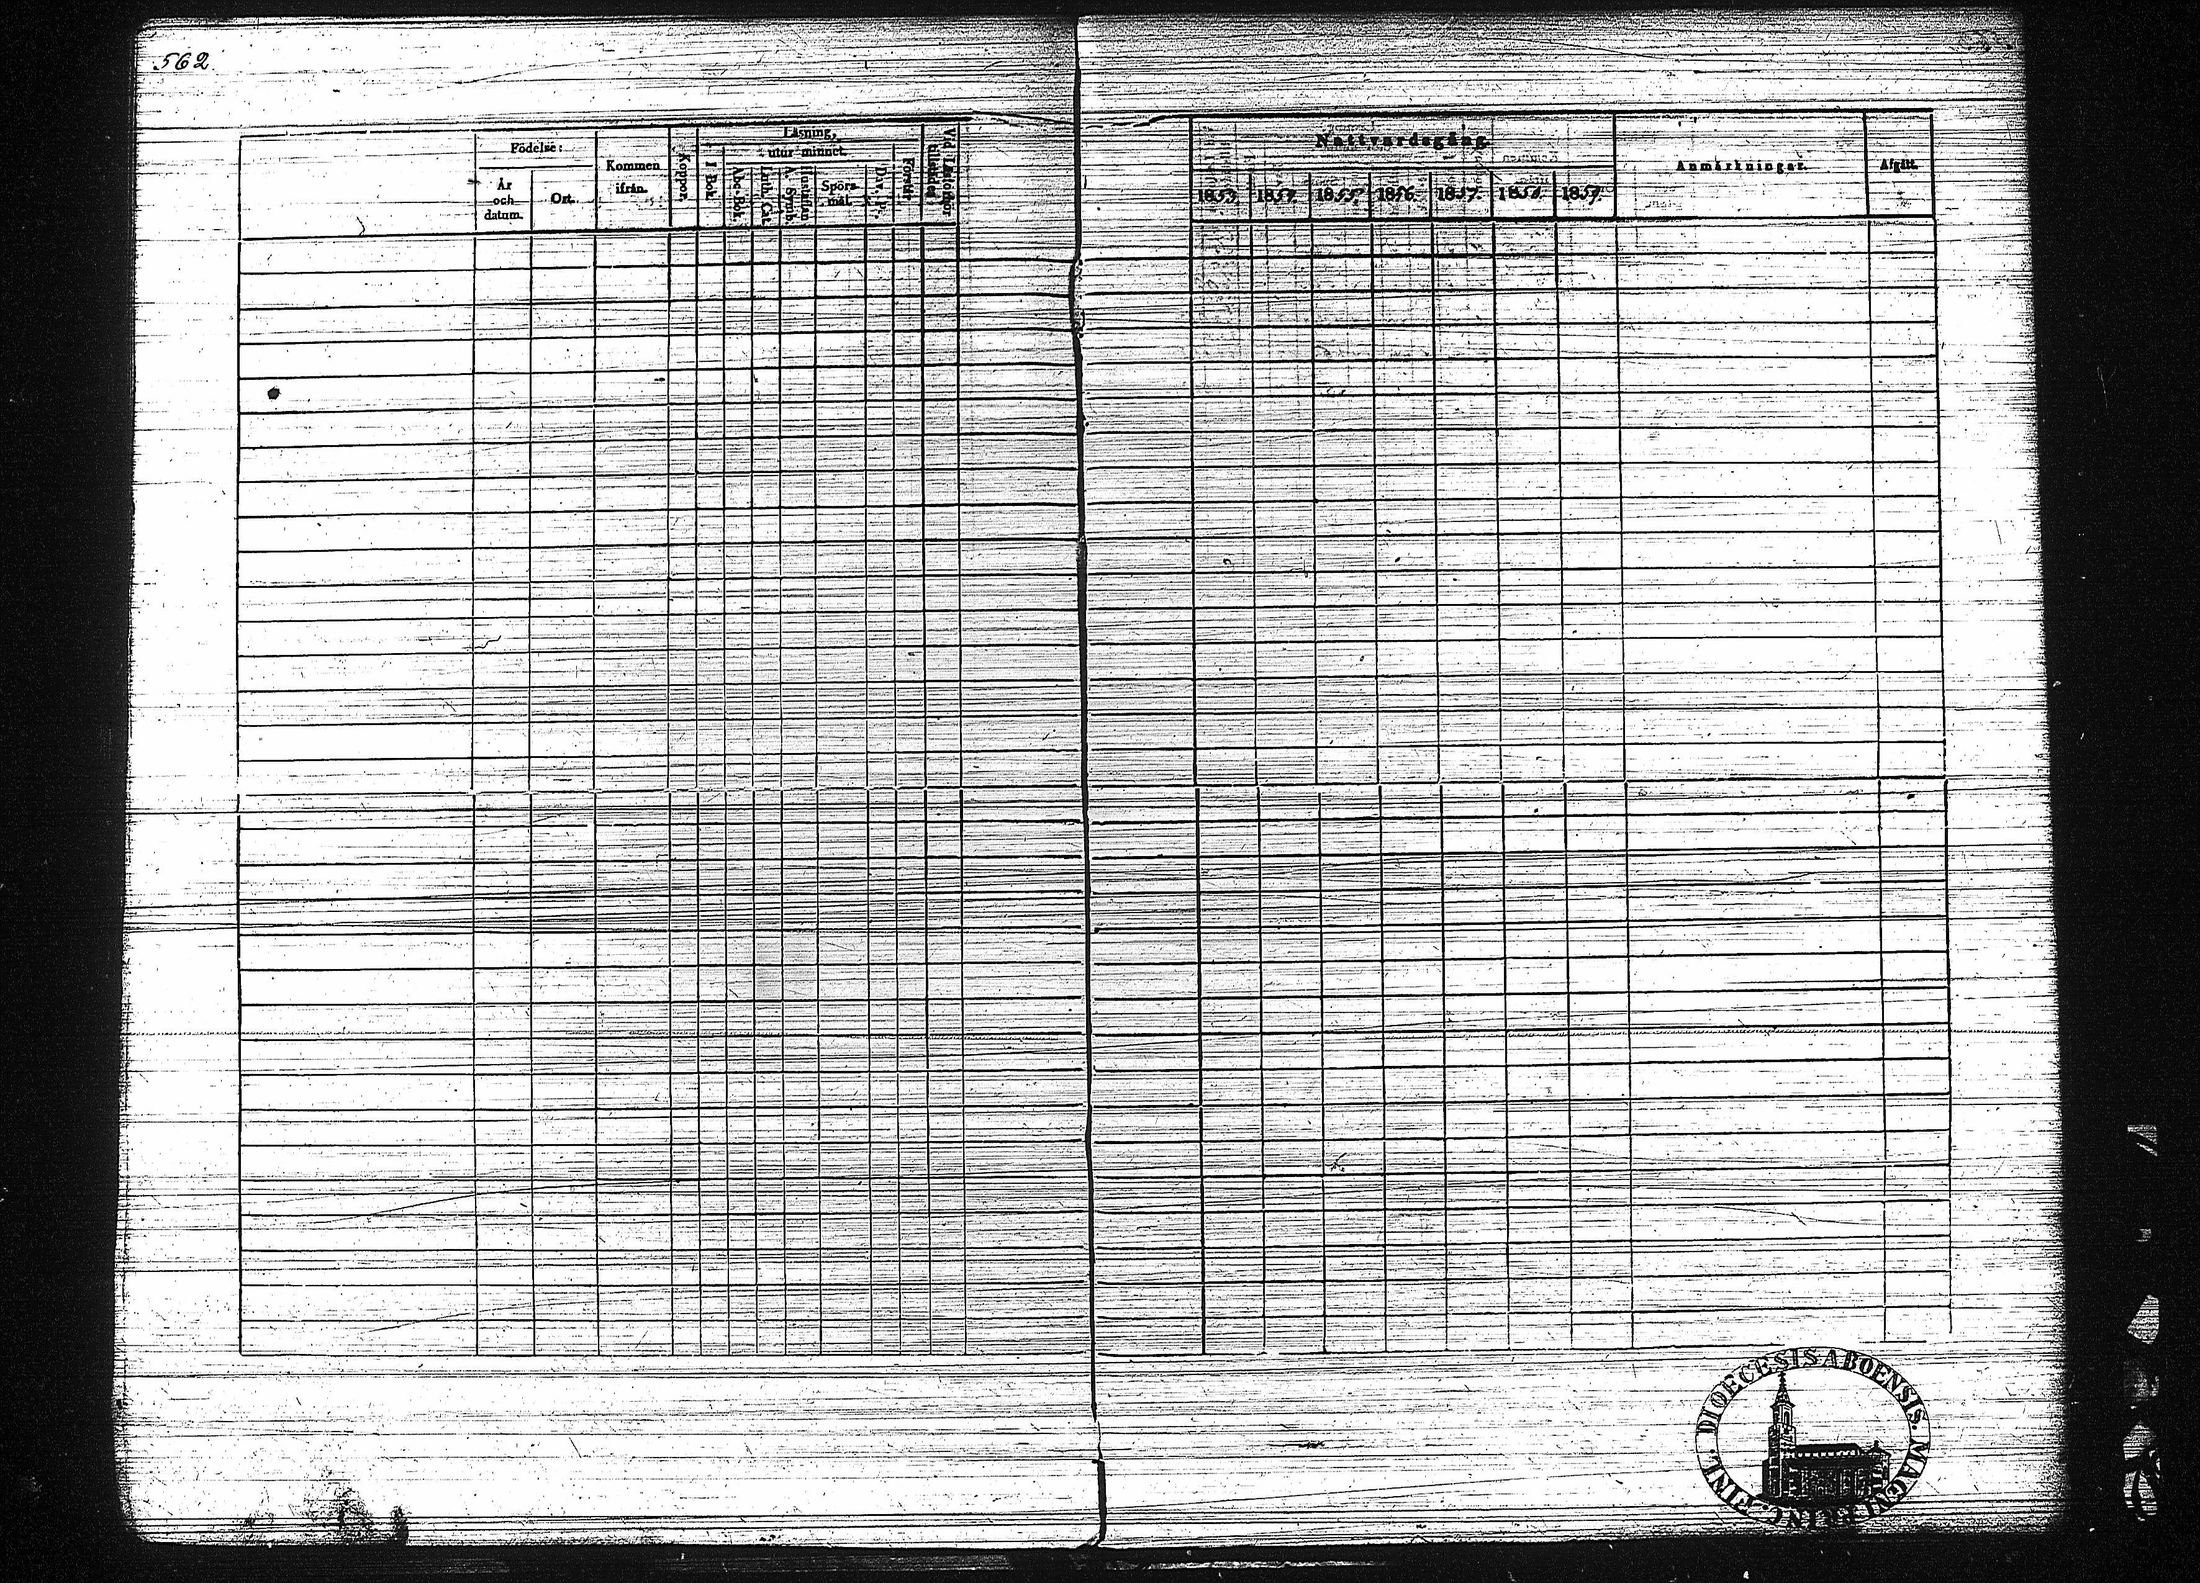 562
Födelse:
År
och
datum.
Ort.
Kommen
ifrån.
Koppor.
Läsning,
utur minnet.
I Bok.
Abc-Bok.
Luth. Cat.
A. Symb.
Spörs-
mål.
Dav. Ps.
Förstår
Vid Läsförhör
Nattvardsgång.
1853. 1854. 1855. 1856. 1857. 1858. 1859.
Anmärkningar.
Afgått.
DIOECESIS ABOENSIS. MAGNI PRINC. FINL.